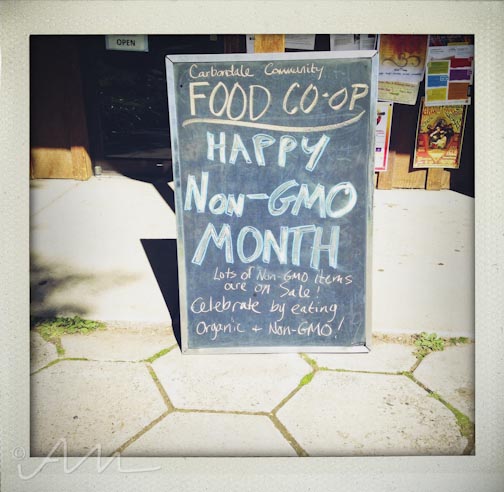 OPEN
Carbondale Community
FOOD CO-OP
HAPPY
NON-GMO
MONTH
Lots of Non-GMO items
are on Sale!
Celebrate by eating
Organic + Non-GMO!
© AM